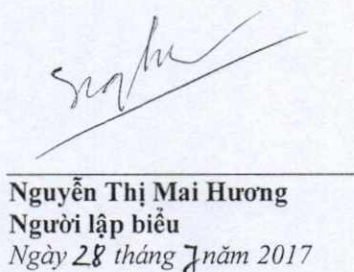 Nguyễn Thị Mai Hương
Người lập biểu
Ngày 28 tháng 7 năm 2017